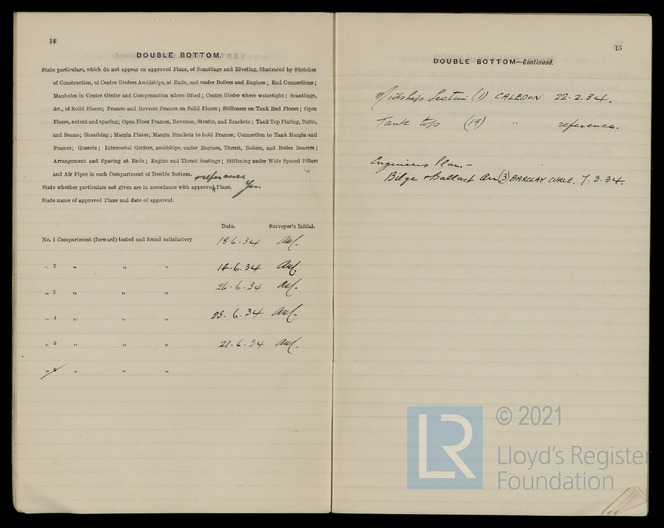 14
DOUBLE BOTTOM.
State particulars, which do not appear on approved Plans, of Scantlings and Riveting, illustrated by Sketches
of Construction, of Centre Girders Amidships, at Ends, and under Boilers and Engines; End Connections;
Manholes in Centre Girder and Compensation where fitted; Centre Girder where watertight; Scantlings,
&c., of Solid Floors; Frames and Reverse Frames on Solid Floors; Stiffeners on Tank End Floors; Open
Floors, extent and spacing; Open Floor Frames, Reverses, Struts, and Brackets; Tank Top Plating, Butts,
and Seams; Sheathing; Margin Plates; Margin Brackets to hold Frames; Connection to Tank Margin and
Frames; Gussets; Intercostal Girders, amidships, under Engines, Thrust, Boilers, and Boiler Bearers;
Arrangement and Spacing at Ends; Engine and Thrust Seatings; Stiffening under Wide Spaced Pillars
and Air Pipes in each Compartment of Double Bottom.
reference
State whether particulars not given are in accordance with approved Plans. Yes
State name of approved Plans and date of approval.
Date. Surveyor's Initial.
No. 1 Compartment (forward) tested and found satisfactory 18.6.34
„ 2 „ „ „ 14.6.34
„ 3 „ „ „ 26.6.34
„ 4 „ „ „ 23.6.34
„ 5 „ „ „ 21.6.34
„ 6 „ „ „
15
DOUBLE BOTTOM—Continued.
Midships Section (1) CALEDON 22.2.34.
Tank top (19) „ reference.
Engineers Plan—
Bilge & Ballast Arr (3) BARCLAY CURLE. 7.3.34.
LR
© 2021
Lloyd's Register
Foundation